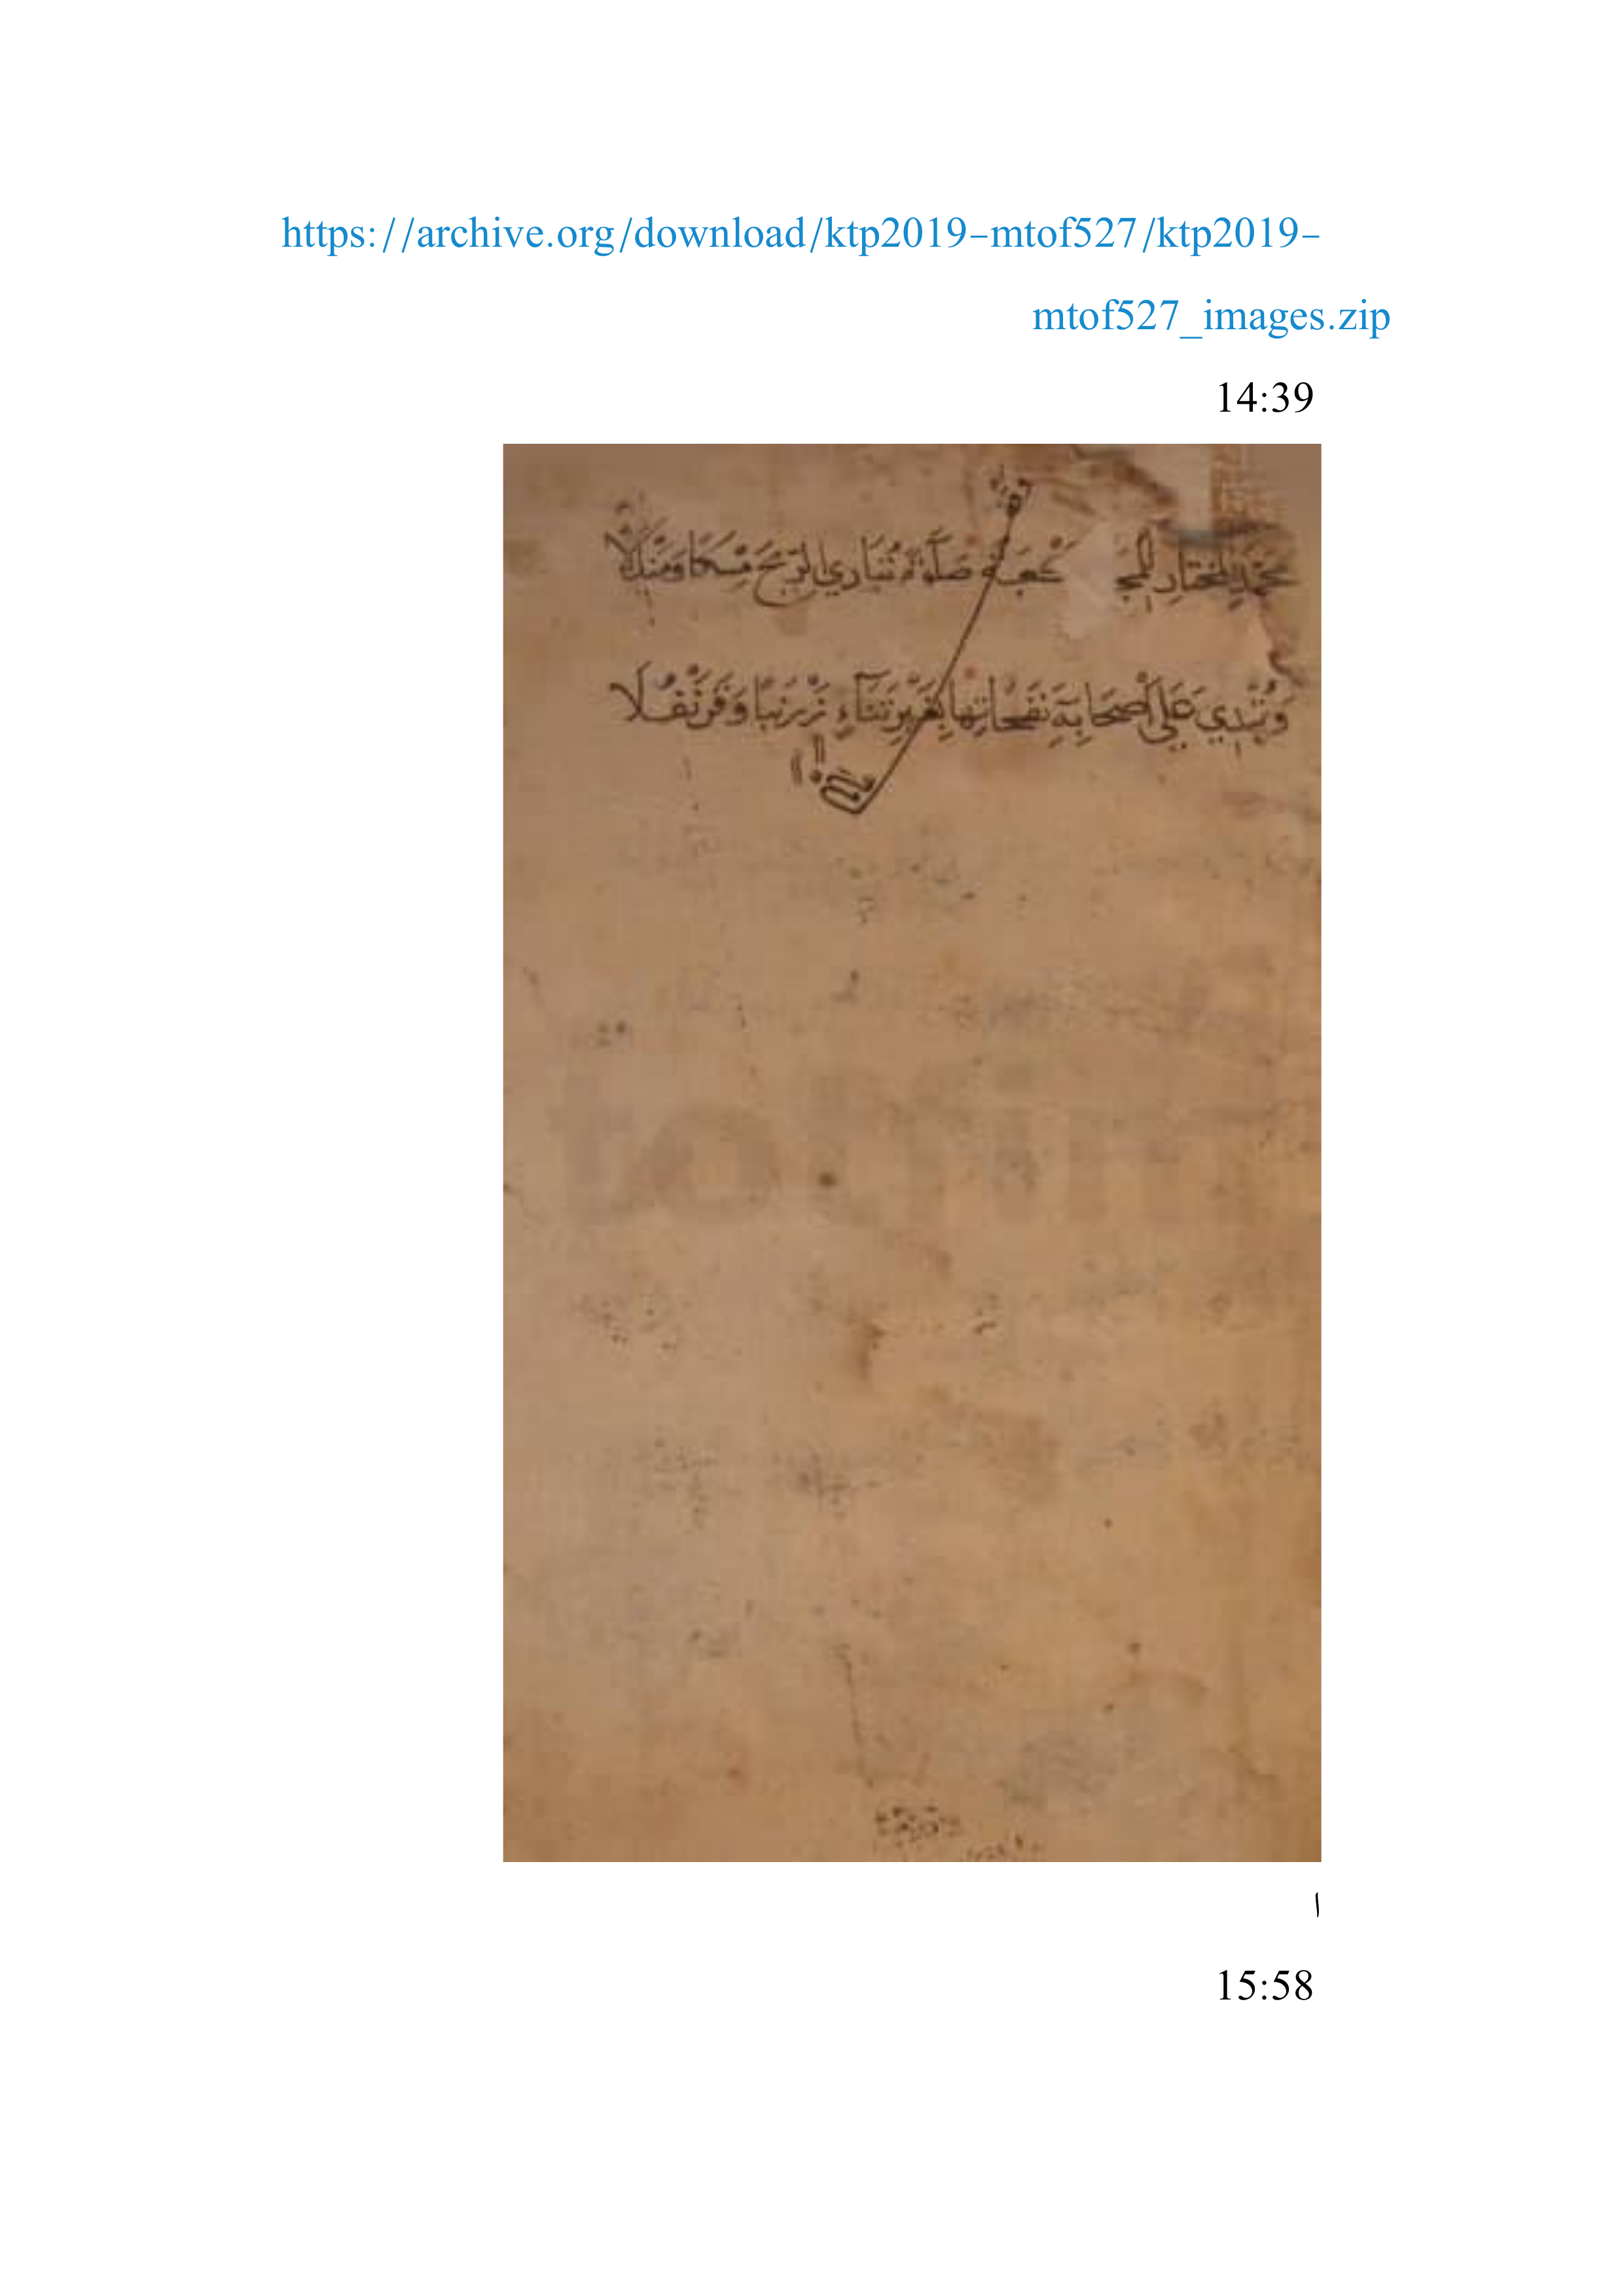 https://archive.org/download/ktp2019-mtof527/ktp2019-
mtof527_images.zip
14:39
مُحَمَّدٍ المُخْتَارِ لِلْمَجْ كَعْبَةً صَلَاةً تُبَارِي الرِّيحَ مِسْكًا وَمَنْدَلَا
وَتُبْدِي عَلَى أَصْحَابِهِ نَفَحَاتِهَا بِغَيْرِ تَنَاءٍ زَرْنَبًا وَقَرَنْفُلَا
ا
15:58